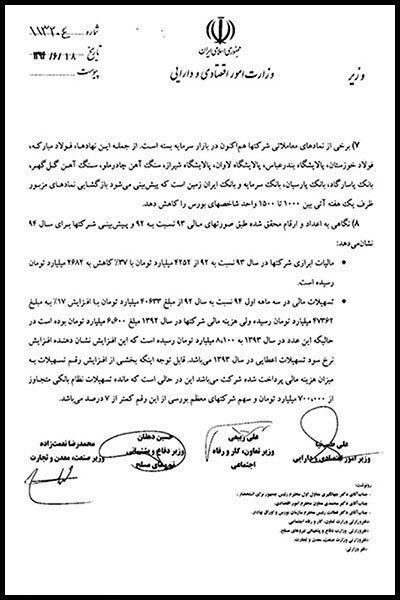 شماره ۱۱۳۲۰۴
تاریخ ۱۳۹۴/۶/۱۸
پیوست
جمهوری اسلامی ایران
وزارت امور اقتصادی و دارایی
وزیر
۷) برخی از نمادهای معاملاتی شرکتها هم‌اکنون در بازار سرمایه بسته است. از جمله این نهادها، فولاد مبارکه،
فولاد خوزستان، پالایشگاه بندرعباس، پالایشگاه لاوان، پالایشگاه شیراز، سنگ آهن چادرملو، سنگ آهن گل‌گهر،
بانک پاسارگاد، بانک پارسیان، بانک سرمایه و بانک ایران زمین است که پیش‌بینی می‌شود بازگشایی نمادهای مزبور
ظرف یک هفته آتی بین ۱۰۰۰ تا ۱۵۰۰ واحد شاخصهای بورس را کاهش دهد.
۸) نگاهی به اعداد و ارقام محقق شده طبق صورتهای مالی ۹۳ نسبت به ۹۲ و پیش‌بینی شرکتها برای سال ۹۴
نشان‌می‌دهد:
• مالیات ابرازی شرکتها در سال ۹۳ نسبت به ۹۲ از ۴۲۵۲ میلیارد تومان با ۳۷٪ کاهش به ۲۶۸۲ میلیارد تومان
رسیده است.
• تسهیلات مالی در سه ماهه اول ۹۴ نسبت به سال ۹۲ از مبلغ ۴۰۶۳۳ میلیارد تومان با افزایش ۱۷٪ به مبلغ
۴۷۳۶۲ میلیارد تومان رسیده ولی هزینه مالی شرکتها در سال ۱۳۹۲ مبلغ ۶,۶۰۰ میلیارد تومان بوده است در
حالیکه این عدد در سال ۱۳۹۳ به ۸,۱۰۰ میلیارد تومان رسیده است که این افزایش نشان دهنده افزایش
نرخ سود تسهیلات اعطایی در سال ۱۳۹۳ می‌باشد. قابل توجه اینکه بخشی از افزایش رقم تسهیلات به
میزان هزینه مالی پرداخت شده شرکت می‌باشد این در حالی است که مانده تسهیلات نظام بانکی متجاوز
از ۷۰۰,۰۰۰ میلیارد تومان و سهم شرکتهای معظم بورسی از این رقم کمتر از ۷ درصد می‌باشد.
علی طیب‌نیا
وزیر امور اقتصادی و دارایی
علی ربیعی
وزیر تعاون، کار و رفاه
اجتماعی
حسین دهقان
وزیر دفاع و پشتیبانی
نیروهای مسلح
محمدرضا نعمت‌زاده
وزیر صنعت، معدن و تجارت
رونوشت:
- جناب آقای دکتر جهانگیری معاون اول محترم رئیس جمهور برای استحضار.
- جناب آقای دکتر محمدی معاون محترم امور اقتصادی.
- جناب آقای دکتر فطانت رئیس محترم سازمان بورس و اوراق بهادار.
- دفتر وزارتی وزارت تعاون، کار و رفاه اجتماعی
- دفتر وزارتی وزارت دفاع و پشتیبانی نیروهای مسلح.
- دفتر وزارتی وزارت صنعت، معدن و تجارت.
- دفتر وزارتی.